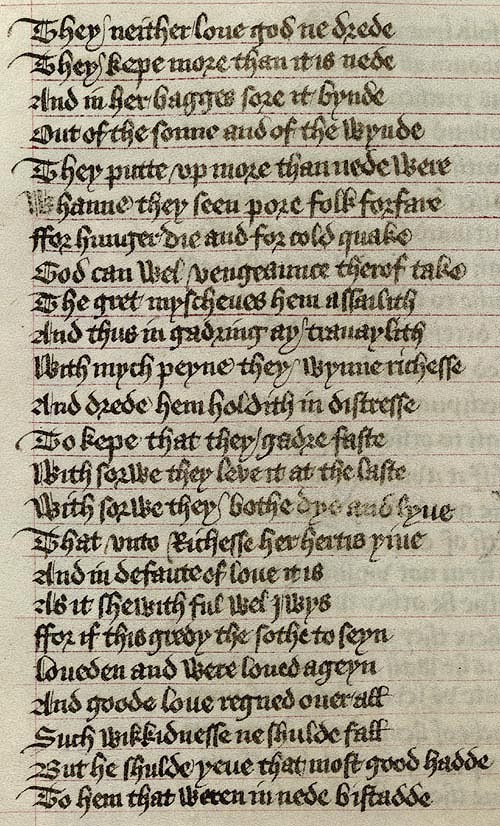 They neither loue god ne drede
They kepe more than it is nede
And in her bagges sore it bynde
Out of the sonne and of the wynde
They putte vp more than nede were
Whanne they seen pore folk forfare
ffor hunger die and for cold quake
God can wel vengeaunce therof take
The gret myscheues hem assailith
And thus in gadring ay trauaylith
With mych peyne they wynne richesse
And drede hem holdith in distresse
To kepe that they gadre faste
With sorwe they leve it at the laste
With sorwe they bothe dye and lyue
That vnto Richesse her hertis yiue
And in defaute of loue it is
As it shewith ful wel Jwys
ffor if this gredy the sothe to seyn
loueden and were loued ageyn
And goode loue regned ouer all
Such wikkidnesse ne shulde fall
But he shulde yeue that most good hadde
To hem that weren in nede bistadde